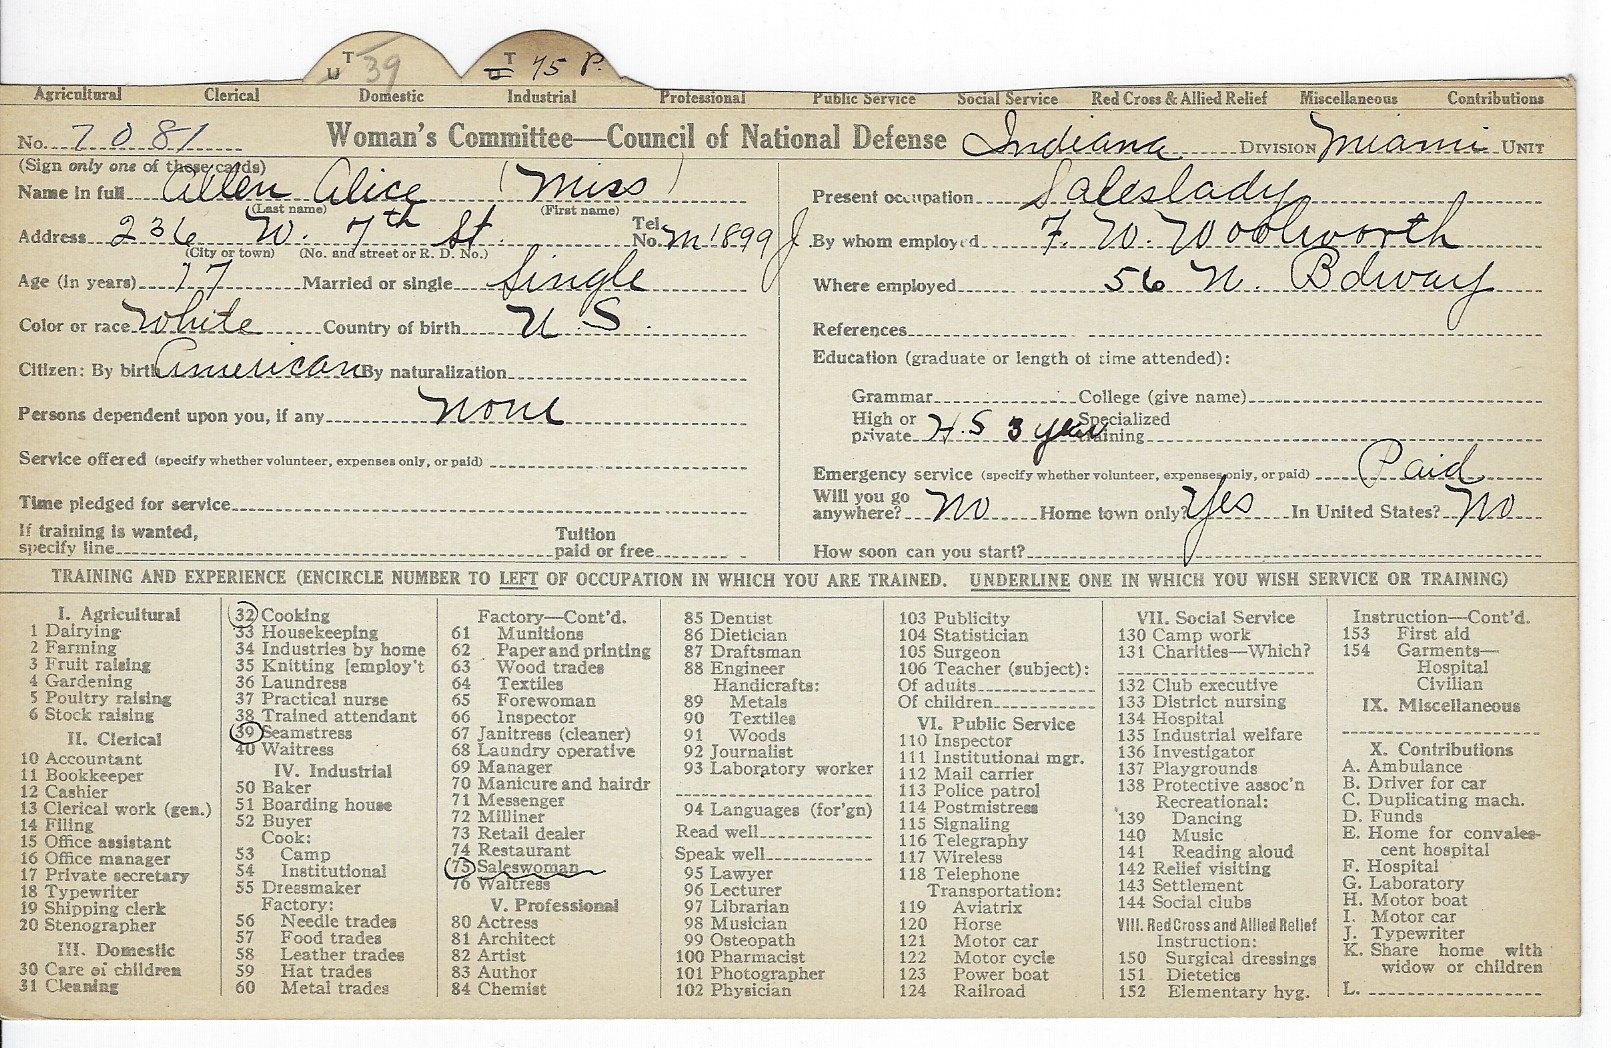 T U 39 T U 75 P.
Agricultural Clerical Domestic Industrial Professional Public Service Social Service Red Cross & Allied Relief Miscellaneous Contributions
No. 7081 Woman's Committee—Council of National Defense Indiana DIVISION Miami UNIT
(Sign only one of these cards)
Name in full Allen Alice (Miss)
(Last name) (First name)
Address 236 W. 7th St. Tel. No. M 1899 J
(City or town) (No. and street or R. D. No.)
Age (in years) 17 Married or single Single
Color or race White Country of birth U. S.
Citizen: By birth American By naturalization
Persons dependent upon you, if any None
Service offered (specify whether volunteer, expenses only, or paid)
Time pledged for service
If training is wanted, specify line
Tuition paid or free
Present occupation Saleslady
By whom employed F. W. Woolworth
Where employed 56 N. Bdway
References
Education (graduate or length of time attended):
Grammar College (give name)
High or private H.S 3 year Specialized training
Emergency service (specify whether volunteer, expenses only, or paid) Paid
Will you go anywhere? No Home town only? Yes In United States? No
How soon can you start?
TRAINING AND EXPERIENCE (ENCIRCLE NUMBER TO LEFT OF OCCUPATION IN WHICH YOU ARE TRAINED. UNDERLINE ONE IN WHICH YOU WISH SERVICE OR TRAINING)
I. Agricultural
1 Dairying
2 Farming
3 Fruit raising
4 Gardening
5 Poultry raising
6 Stock raising
II. Clerical
10 Accountant
11 Bookkeeper
12 Cashier
13 Clerical work (gen.)
14 Filing
15 Office assistant
16 Office manager
17 Private secretary
18 Typewriter
19 Shipping clerk
20 Stenographer
III. Domestic
30 Care of children
31 Cleaning
32 Cooking
33 Housekeeping
34 Industries by home
35 Knitting [employ't
36 Laundress
37 Practical nurse
38 Trained attendant
39 Seamstress
40 Waitress
IV. Industrial
50 Baker
51 Boarding house
52 Buyer
Cook:
53 Camp
54 Institutional
55 Dressmaker
Factory:
56 Needle trades
57 Food trades
58 Leather trades
59 Hat trades
60 Metal trades
Factory—Cont'd.
61 Munitions
62 Paper and printing
63 Wood trades
64 Textiles
65 Forewoman
66 Inspector
67 Janitress (cleaner)
68 Laundry operative
69 Manager
70 Manicure and hairdr
71 Messenger
72 Milliner
73 Retail dealer
74 Restaurant
75 Saleswoman
76 Waitress
V. Professional
80 Actress
81 Architect
82 Artist
83 Author
84 Chemist
85 Dentist
86 Dietician
87 Draftsman
88 Engineer
Handicrafts:
89 Metals
90 Textiles
91 Woods
92 Journalist
93 Laboratory worker
94 Languages (for'gn)
Read well
Speak well
95 Lawyer
96 Lecturer
97 Librarian
98 Musician
99 Osteopath
100 Pharmacist
101 Photographer
102 Physician
103 Publicity
104 Statistician
105 Surgeon
106 Teacher (subject):
Of adults
Of children
VI. Public Service
110 Inspector
111 Institutional mgr.
112 Mail carrier
113 Police patrol
114 Postmistress
115 Signaling
116 Telegraphy
117 Wireless
118 Telephone
Transportation:
119 Aviatrix
120 Horse
121 Motor car
122 Motor cycle
123 Power boat
124 Railroad
VII. Social Service
130 Camp work
131 Charities—Which?
132 Club executive
133 District nursing
134 Hospital
135 Industrial welfare
136 Investigator
137 Playgrounds
138 Protective assoc'n
Recreational:
139 Dancing
140 Music
141 Reading aloud
142 Relief visiting
143 Settlement
144 Social clubs
VIII. Red Cross and Allied Relief
Instruction:
150 Surgical dressings
151 Dietetics
152 Elementary hyg.
Instruction—Cont'd.
153 First aid
154 Garments—
Hospital
Civilian
IX. Miscellaneous
X. Contributions
A. Ambulance
B. Driver for car
C. Duplicating mach.
D. Funds
E. Home for convales-
cent hospital
F. Hospital
G. Laboratory
H. Motor boat
I. Motor car
J. Typewriter
K. Share home with
widow or children
L.